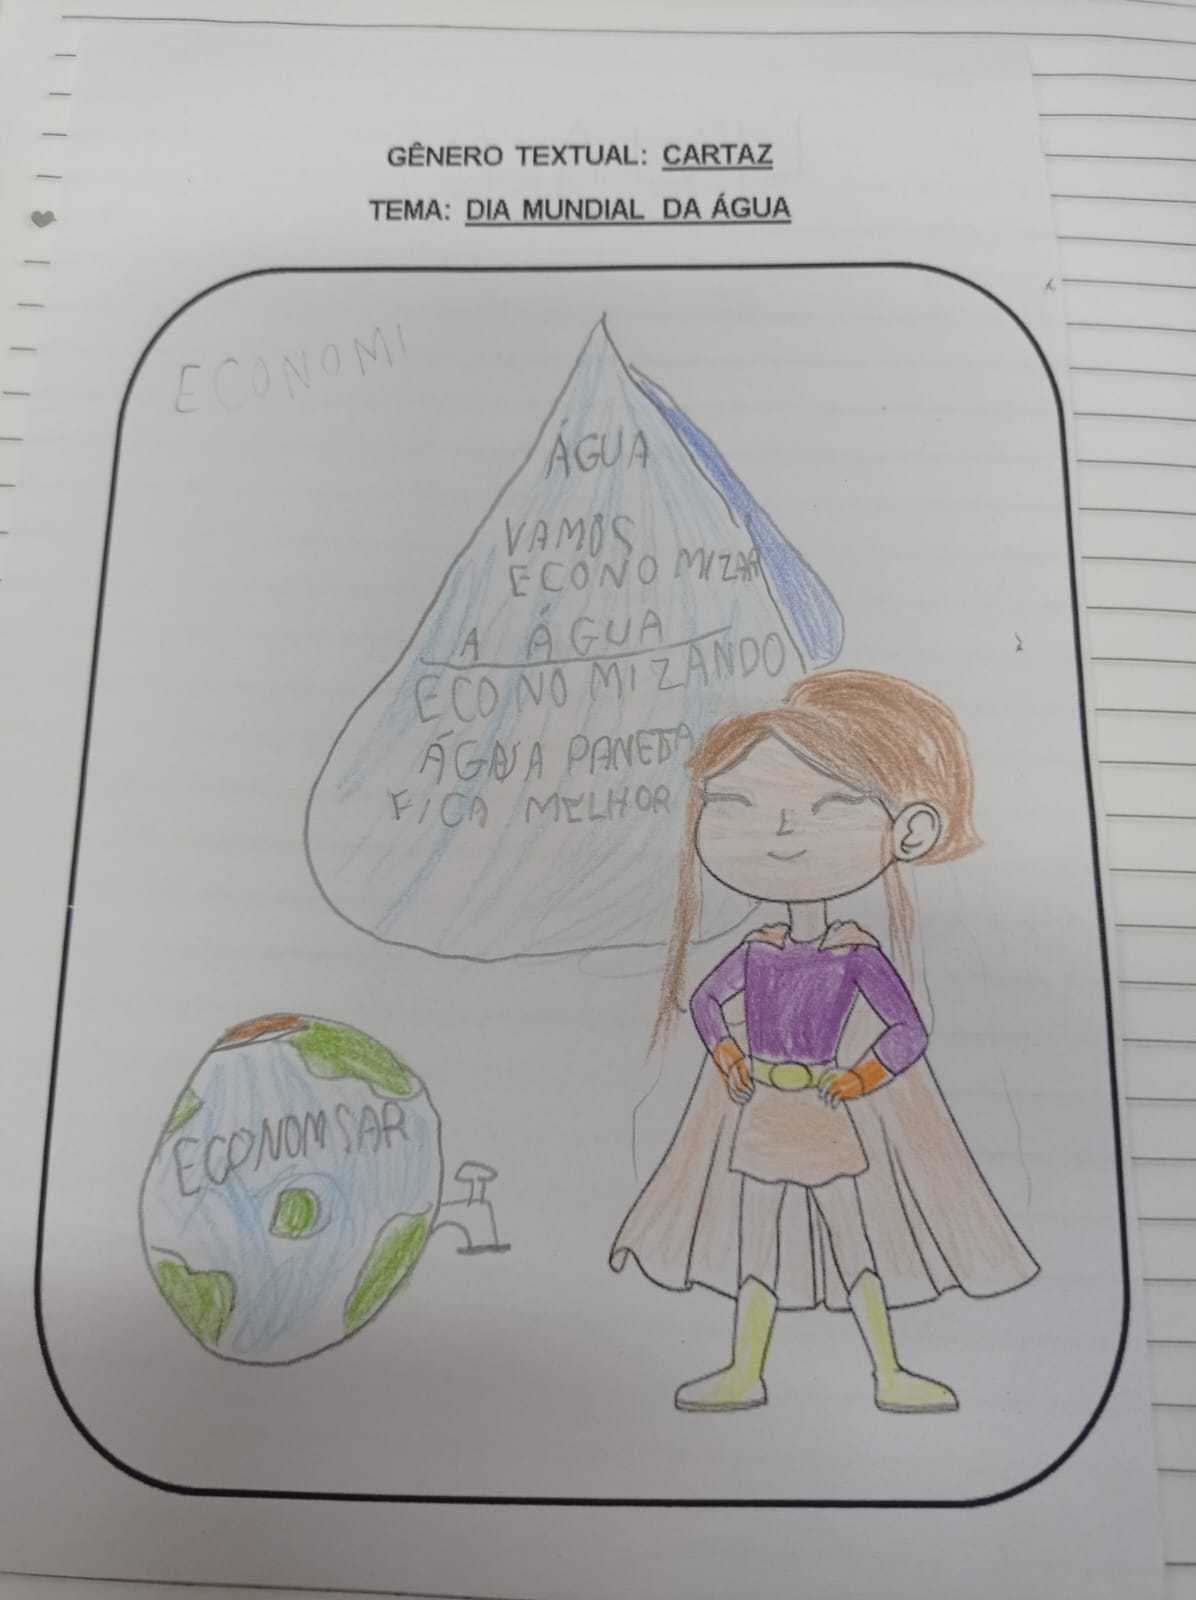 GÊNERO TEXTUAL: CARTAZ
TEMA: DIA MUNDIAL DA ÁGUA
ECONOMI
ÁGUA
VAMOS
ECONOMIZAR
A ÁGUA
ECONOMIZANDO
ÁGUA PANETA
FICA MELHOR
ECONOMSAR